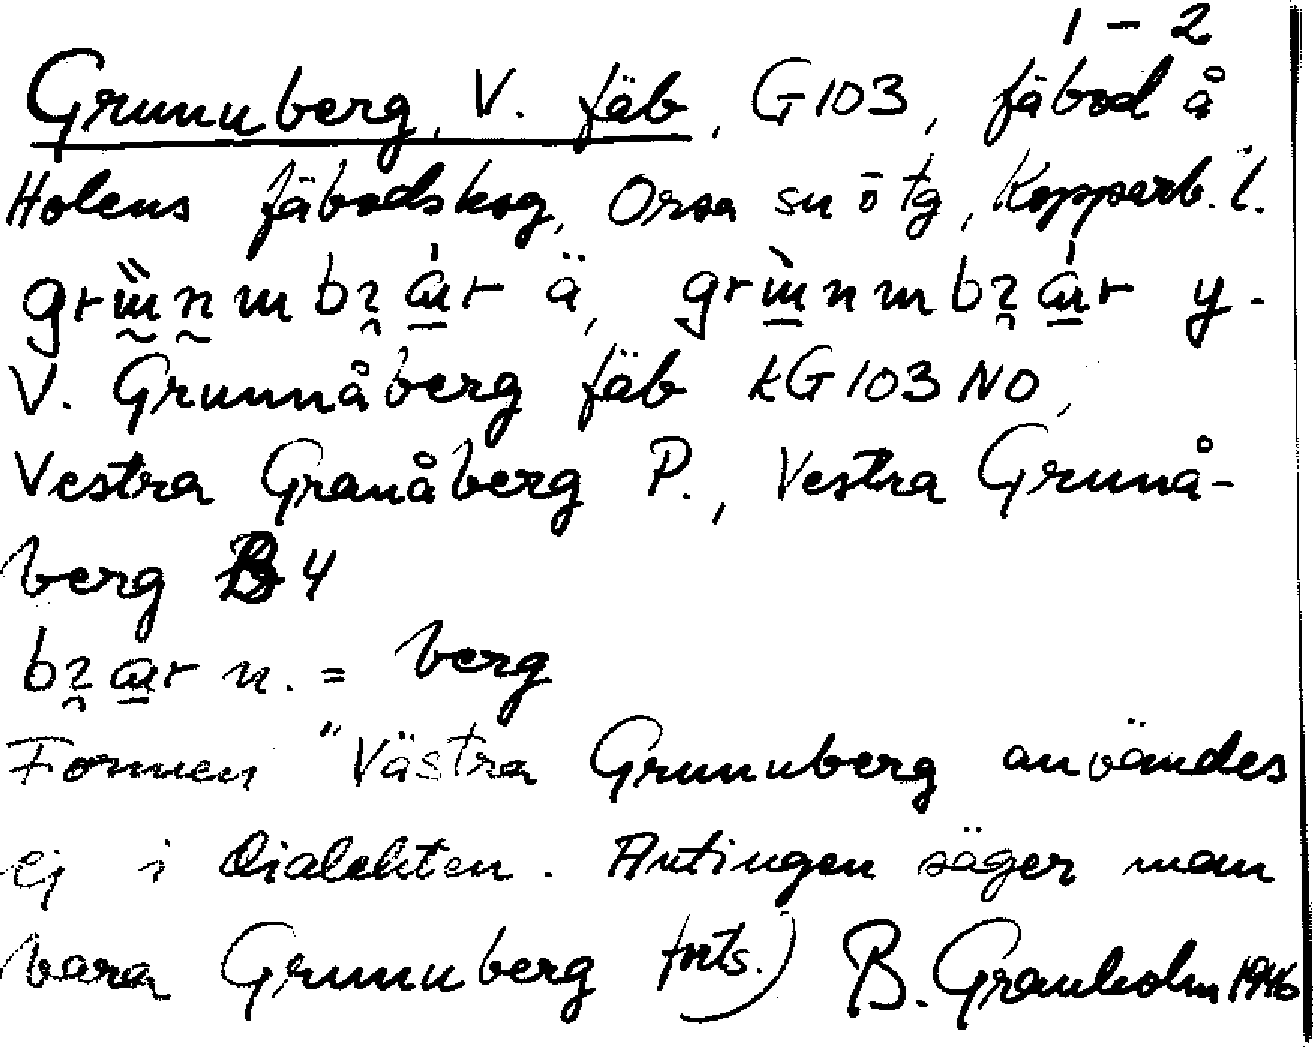 1 – 2
Grunuberg, V. fäb, G103, fäbod å
Holens fäbodskog, Orsa sn ō tg, Kopparb. l.
ä, y-
V. Grunnåberg fäb kG103NO,
Vestra Granåberg P., Vestra Grunå-
berg B4
n. = berg
Formen "Västra Grunuberg användes
ej i dialekten. Antingen säger man
bara Grunuberg forts.) B. Granholm 1946